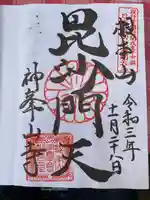 根本山
令和三年
十一月二十八日
毘沙門天
神峯山寺